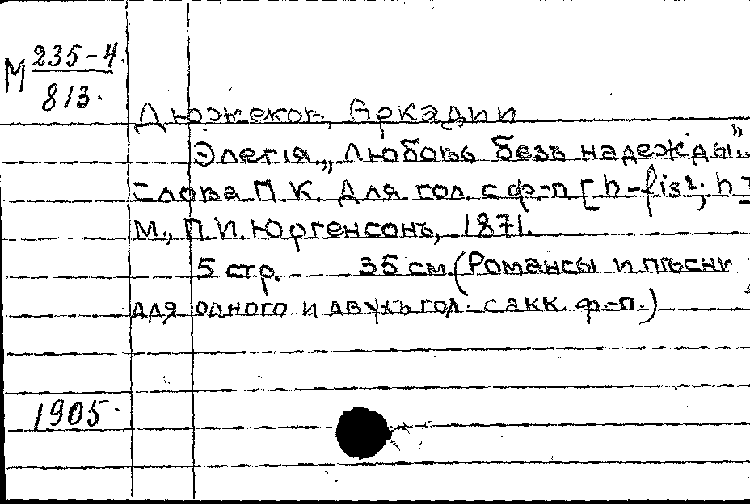 М 235-4
813.
Дюжеков, Аркадии
Элегія „Любовь безъ надежды”.
Слова П.К. Для гол. с ф.-п [h-fis²; h]
М., П.И. Юргенсонъ, 1871.
5 стр. 35 см. (Романсы и пѣсни
для одного и двухъ гол. с акк. ф.-п.)
1905.